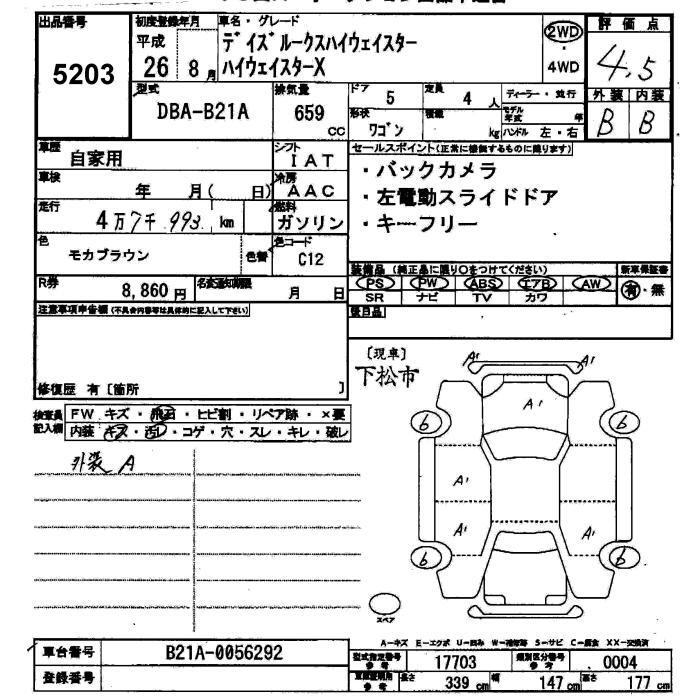 出品番号
5203
初度登録年月
平成
26 8 月
車名・グレード
デイズルークスハイウェイスター
ハイウェイスターX
2WD
4WD
評価点
4.5
外装 内装
B B
型式
DBA-B21A
排気量
659 CC
ドア
5
定員
4 人
ディーラー・並行
形状
ワゴン
積載
kg
モデル年式 年
ハンドル 左・右
車歴
自家用
シフト
IAT
車検
年 月( 日)
冷房
AAC
走行
4万7千993 km
燃料
ガソリン
色
モカブラウン
色替
色コード
C12
セールスポイント(正常に稼働するものに限ります)
・バックカメラ
・左電動スライドドア
・キーフリー
R券
8,860 円
名変通知期限
月 日
装備品 (純正品に限り○をつけてください)
PS PW ABS エアB AW
SR ナビ TV カワ
新車保証書
有・無
後日品
注意事項申告欄(不具合内容等は具体的に記入して下さい)
修復歴 有〔箇所 〕
検査員記入欄
FW キズ・飛石・ヒビ割・リペア跡・×要
内装 キズ・汚レ・コゲ・穴・スレ・キレ・破レ
外装 A
〔現車〕
下松市
A' A'
A'
6 6
A'
A' A'
6 6
スペア
A-キズ E-エクボ U-凹み W-補修跡 S-サビ C-腐食 XX-交換済
車台番号
B21A-0056292
登録番号
型式指定番号 参考
17703
類別区分番号 参考
0004
長さ 339 cm 幅 147 cm 高さ 177 cm